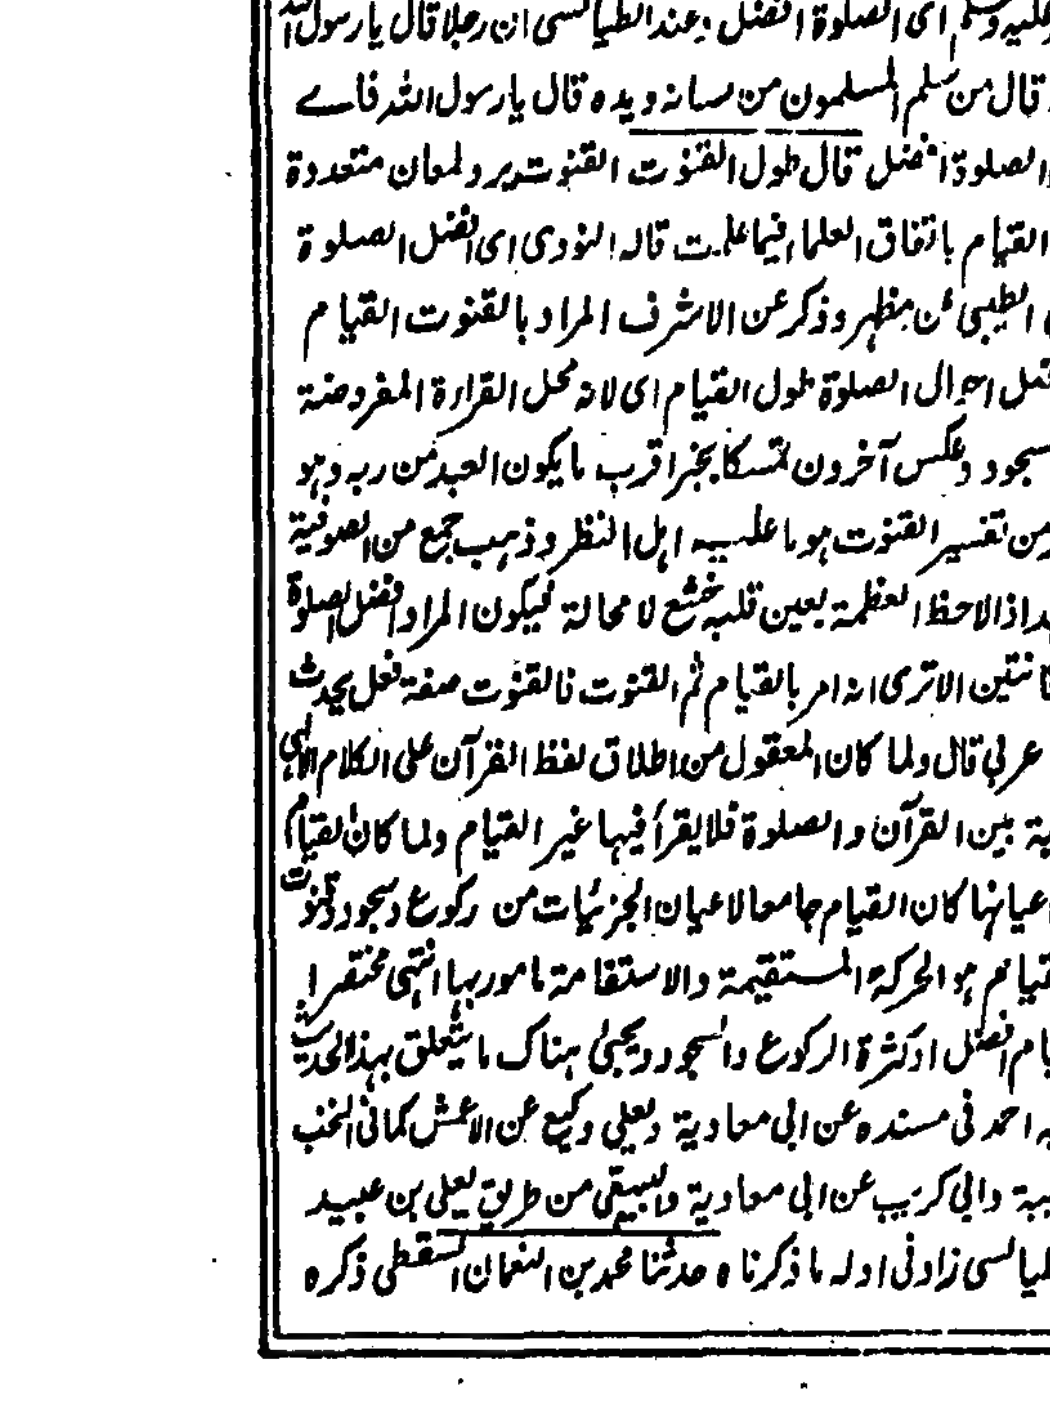 عليه وسلم اى الصلوة افضل وعند الطيالسى ان رجلا قال يا رسول الله
قال من سلم المسلمون من لسانه ويده قال يا رسول الله فاے
الصلوة افضل قال طول القنوت القنوت يرد لمعان متعددة
القيام باتفاق العلماء فيما علمت قاله النووى اى افضل الصلوة
الطيبى عن مظهر وذكر عن الاشرف المراد بالقنوت القيام
احوال الصلوة طول القيام اى لانه محل القراءة المفروضة
وعكس آخرون تمسكا بخبر اقرب ما يكون العبد من ربه وهو
من تفسير القنوت هو ما عليه اهل النظر وذهب جمع من الصوفية
اذا لاحظ العظمة بعين قلبه خشع لا محالة فيكون المراد افضل الصلوة
قانتين الا ترى انه امر بالقيام ثم القنوت فالقنوت صفة فعل يحدث
عربى قال ولما كان المعقول من اطلاق لفظ القرآن على الكلام الالهى
بين القرآن والصلوة فلا يقرأ فيها غير القيام ولما كان القيام
اعيانها كان القيام جامعا لاعيان الجزئيات من ركوع وسجود وقنوت
هو الحركة المستقيمة والاستقامة مامور بها انتهى مختصرا
افضل او كثرة الركوع والسجود ويجئ هناك ما يتعلق بهذا الحديث
احمد فى مسنده عن ابى معاوية ويعلى وكيع عن الاعمش كما فى النخب
وابى كريب عن ابى معاوية والبيهقى من طريق يعلى بن عبيد
زاد فى اوله ما ذكرناه حدثنا محمد بن النعمان السقطى ذكره